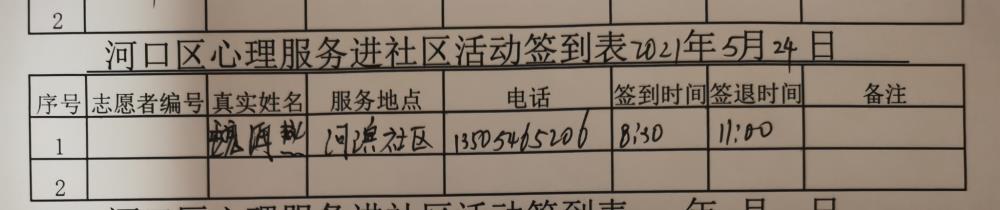 2
河口区心理服务进社区活动签到表2021年5月24日
序号 志愿者编号 真实姓名 服务地点 电话 签到时间 签退时间 备注
1 河滨社区 13505465206 8:30 11:00
2
河口区心理服务进社区活动签到表 年 月 日